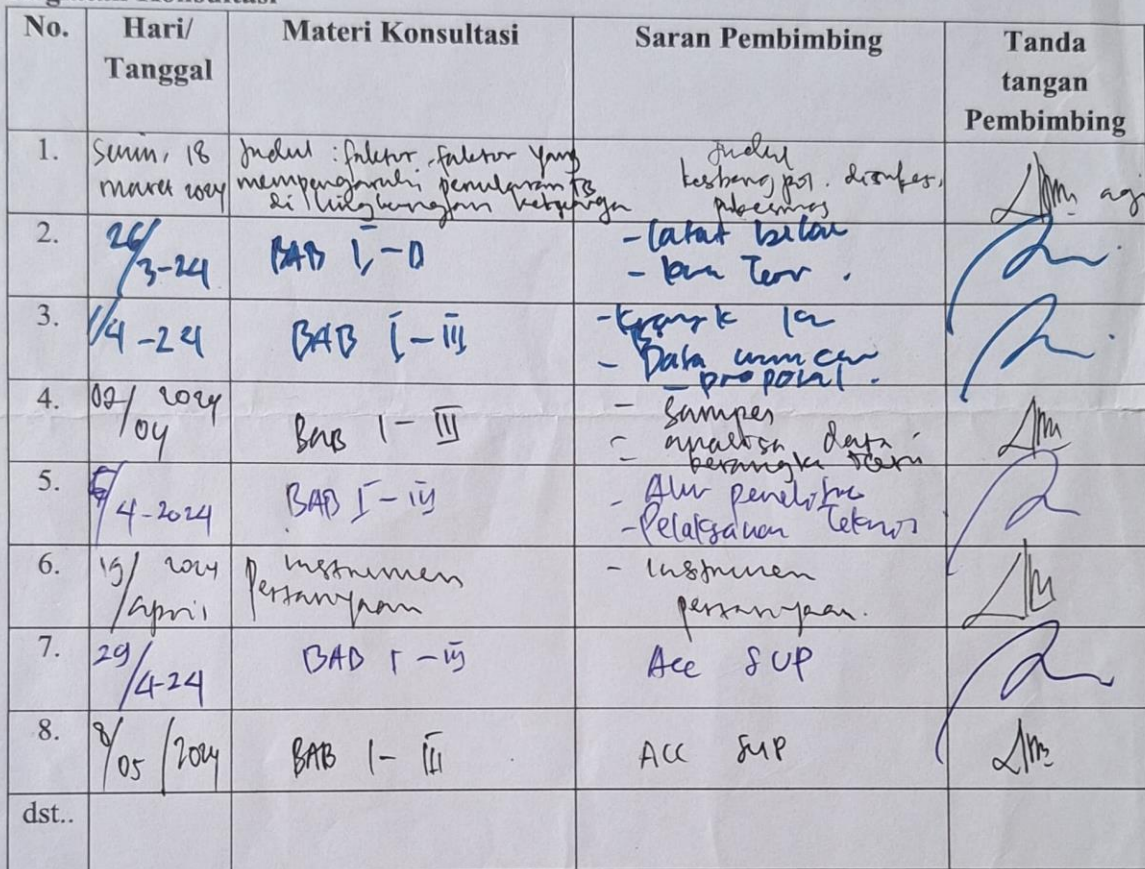 No. Hari/ Tanggal Materi Konsultasi Saran Pembimbing Tanda tangan Pembimbing
1. Senin, 18 Maret 2024 Judul : faktor-faktor yang mempengaruhi penularan TB di lingkungan keluarga Judul kesbangpol. dinkes, puskesmas
2. 26/3-24 BAB I-II - Latar belak - Teor.
3. 1/4-24 BAB I-III - Data - proposal.
4. 02/04 2024 BAB I-III - Sampel - analisa data - kerangka teori
5. 5/4-2024 BAB I-III - Alur penelitia - Pelaksanaan Teknis
6. 19/april 2024 Instrumen Pertanyaan - Instrumen pertanyaan.
7. 29/4-24 BAB I-III Acc SUP
8. 8/05/2024 BAB I-III ACC SUP
dst..